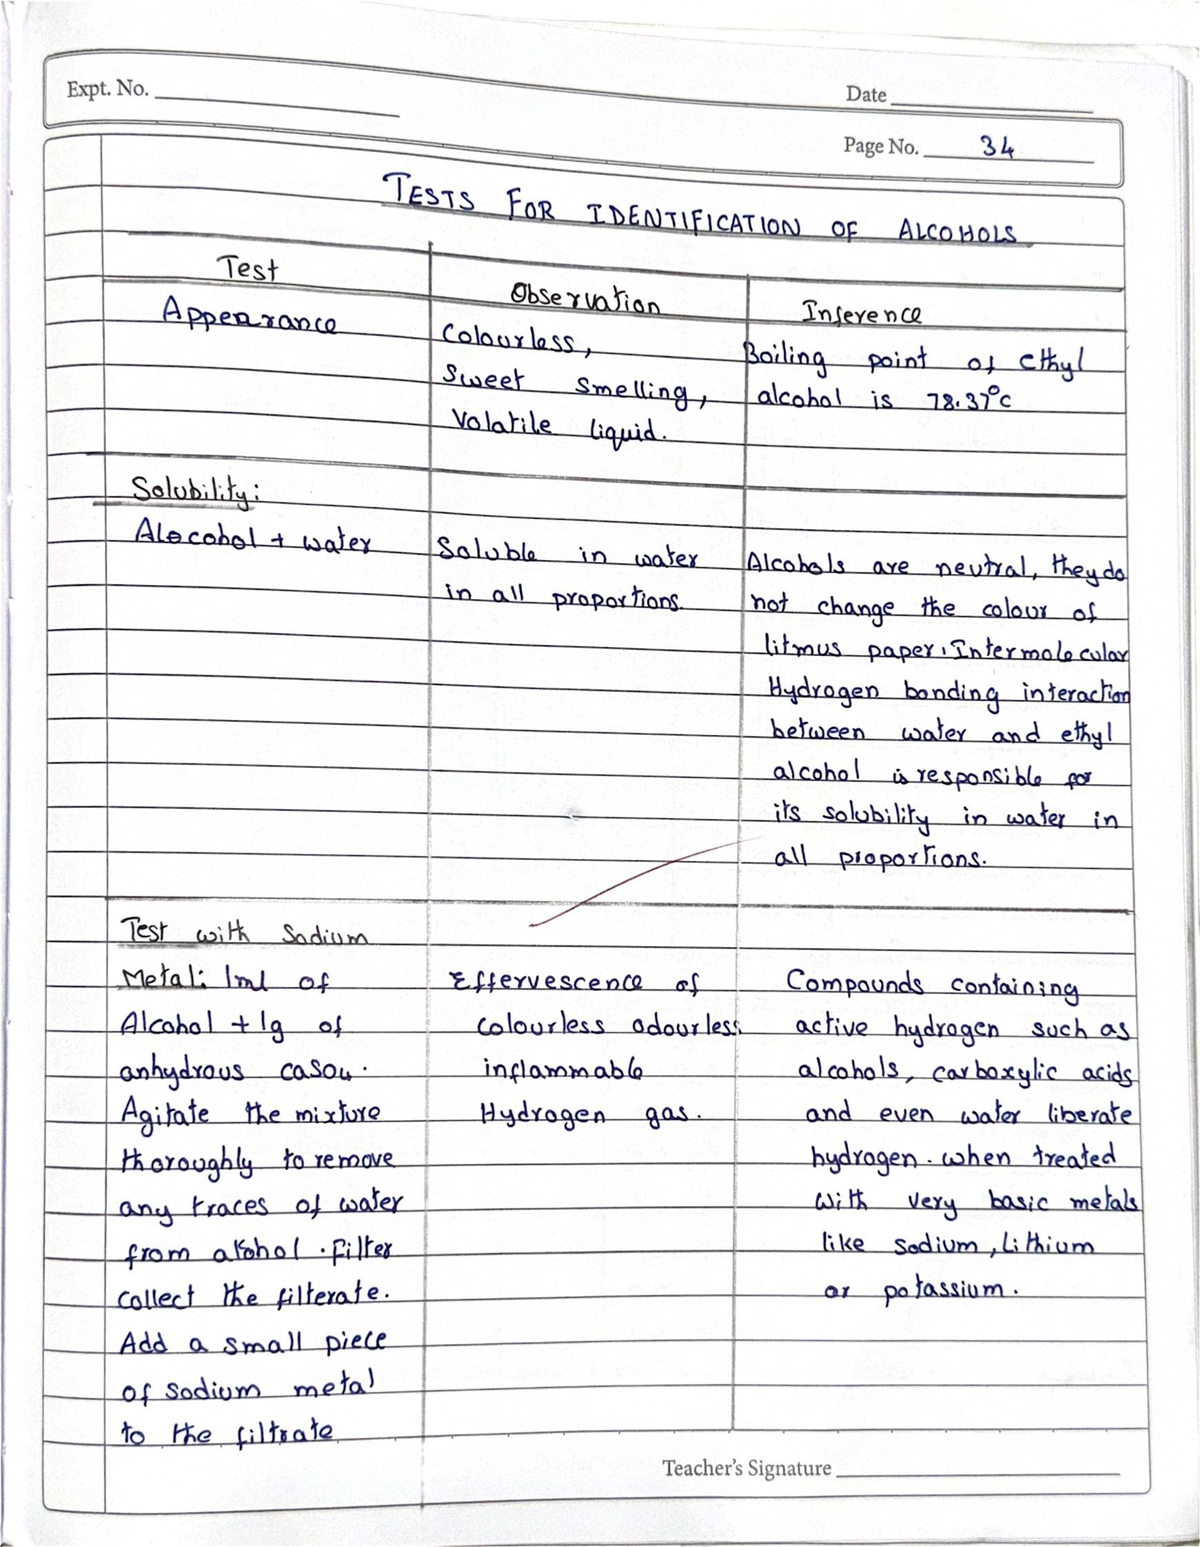 Expt. No.
Date
Page No. 34
TESTS FOR IDENTIFICATION OF ALCOHOLS
Test
Observation
Inference
Appearance
Colourless,
Sweet smelling,
Volatile liquid.
Boiling point of ethyl
alcohol is 78.37°c
Solubility:
Alocohol + water
Soluble in water
in all proportions.
Alcohols are neutral, they do
not change the colour of
litmus paper. Intermolecular
Hydrogen bonding interaction
between water and ethyl
alcohol is responsible for
its solubility in water in
all proportions.
Test with Sodium
Metal: 1ml of
Alcohol + 1g of
anhydrous caso4.
Agitate the mixture
thoroughly to remove
any traces of water
from alcohol. Filter
collect the filterate.
Add a small piece
of sodium metal
to the filtrate
Effervescence of
colourless odourless
inflammable
Hydrogen gas.
Compounds containing
active hydrogen such as
alcohols, carboxylic acids
and even water liberate
hydrogen. when treated
with very basic metals
like sodium, Lithium
or potassium.
Teacher's Signature